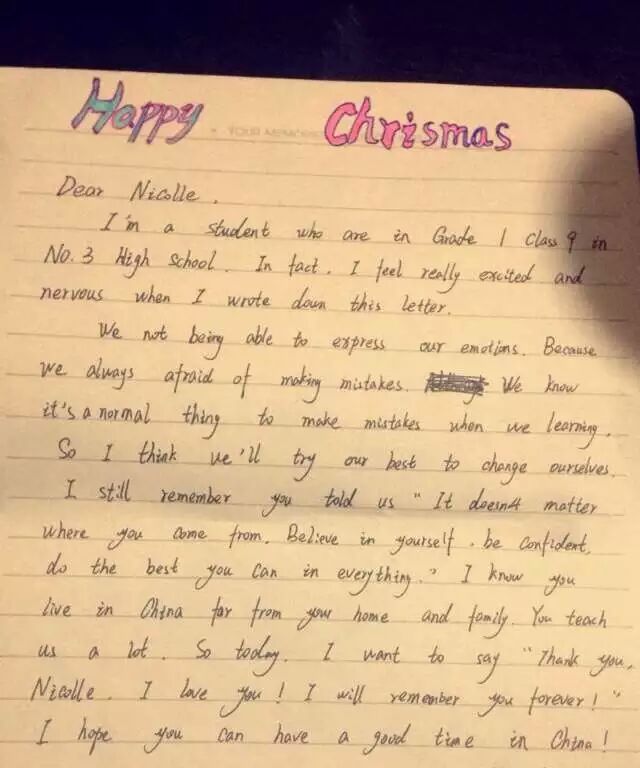 Happy Chrismas
YOUR MEMORIES
Dear Nicolle,
I'm a student who are in Grade 1 Class 9 in
No.3 High school. In fact, I feel really excited and
nervous when I wrote down this letter.
We not being able to express our emotions. Because
we always afraid of making mistakes. We know
it's a normal thing to make mistakes when we learning.
So I think we'll try our best to change ourselves.
I still remember you told us "It doesn't matter
where you come from. Believe in yourself, be confident,
do the best you can in everything." I know you
live in China far from your home and family. You teach
us a lot. So today, I want to say "Thank you,
Nicolle. I love you! I will remember you forever!"
I hope you can have a good time in China!